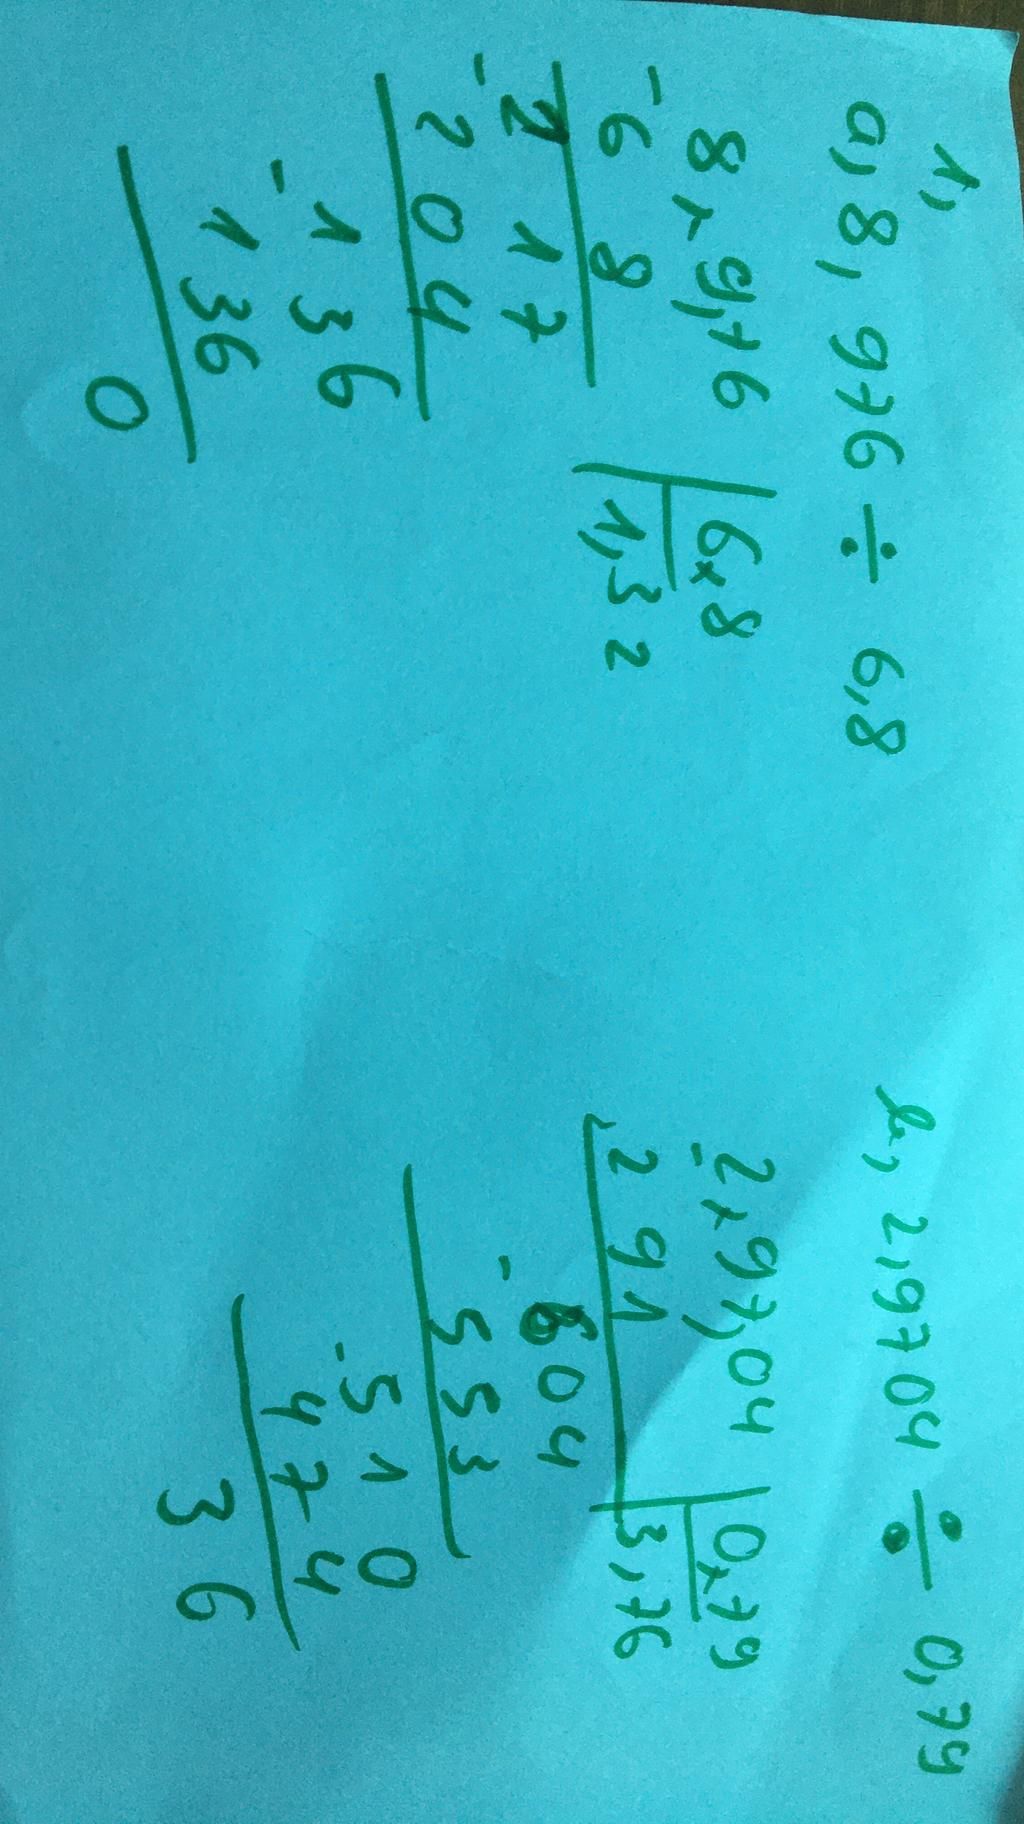 1,
a, 8,976 ÷ 6,8
8,9,76 | 6,8
-6 8 | 1,32
217
- 204
136
- 136
0
b, 2,9704 ÷ 0,79
2,97,04 | 0,79
- 291 | 3,76
604
- 553
510
- 474
36